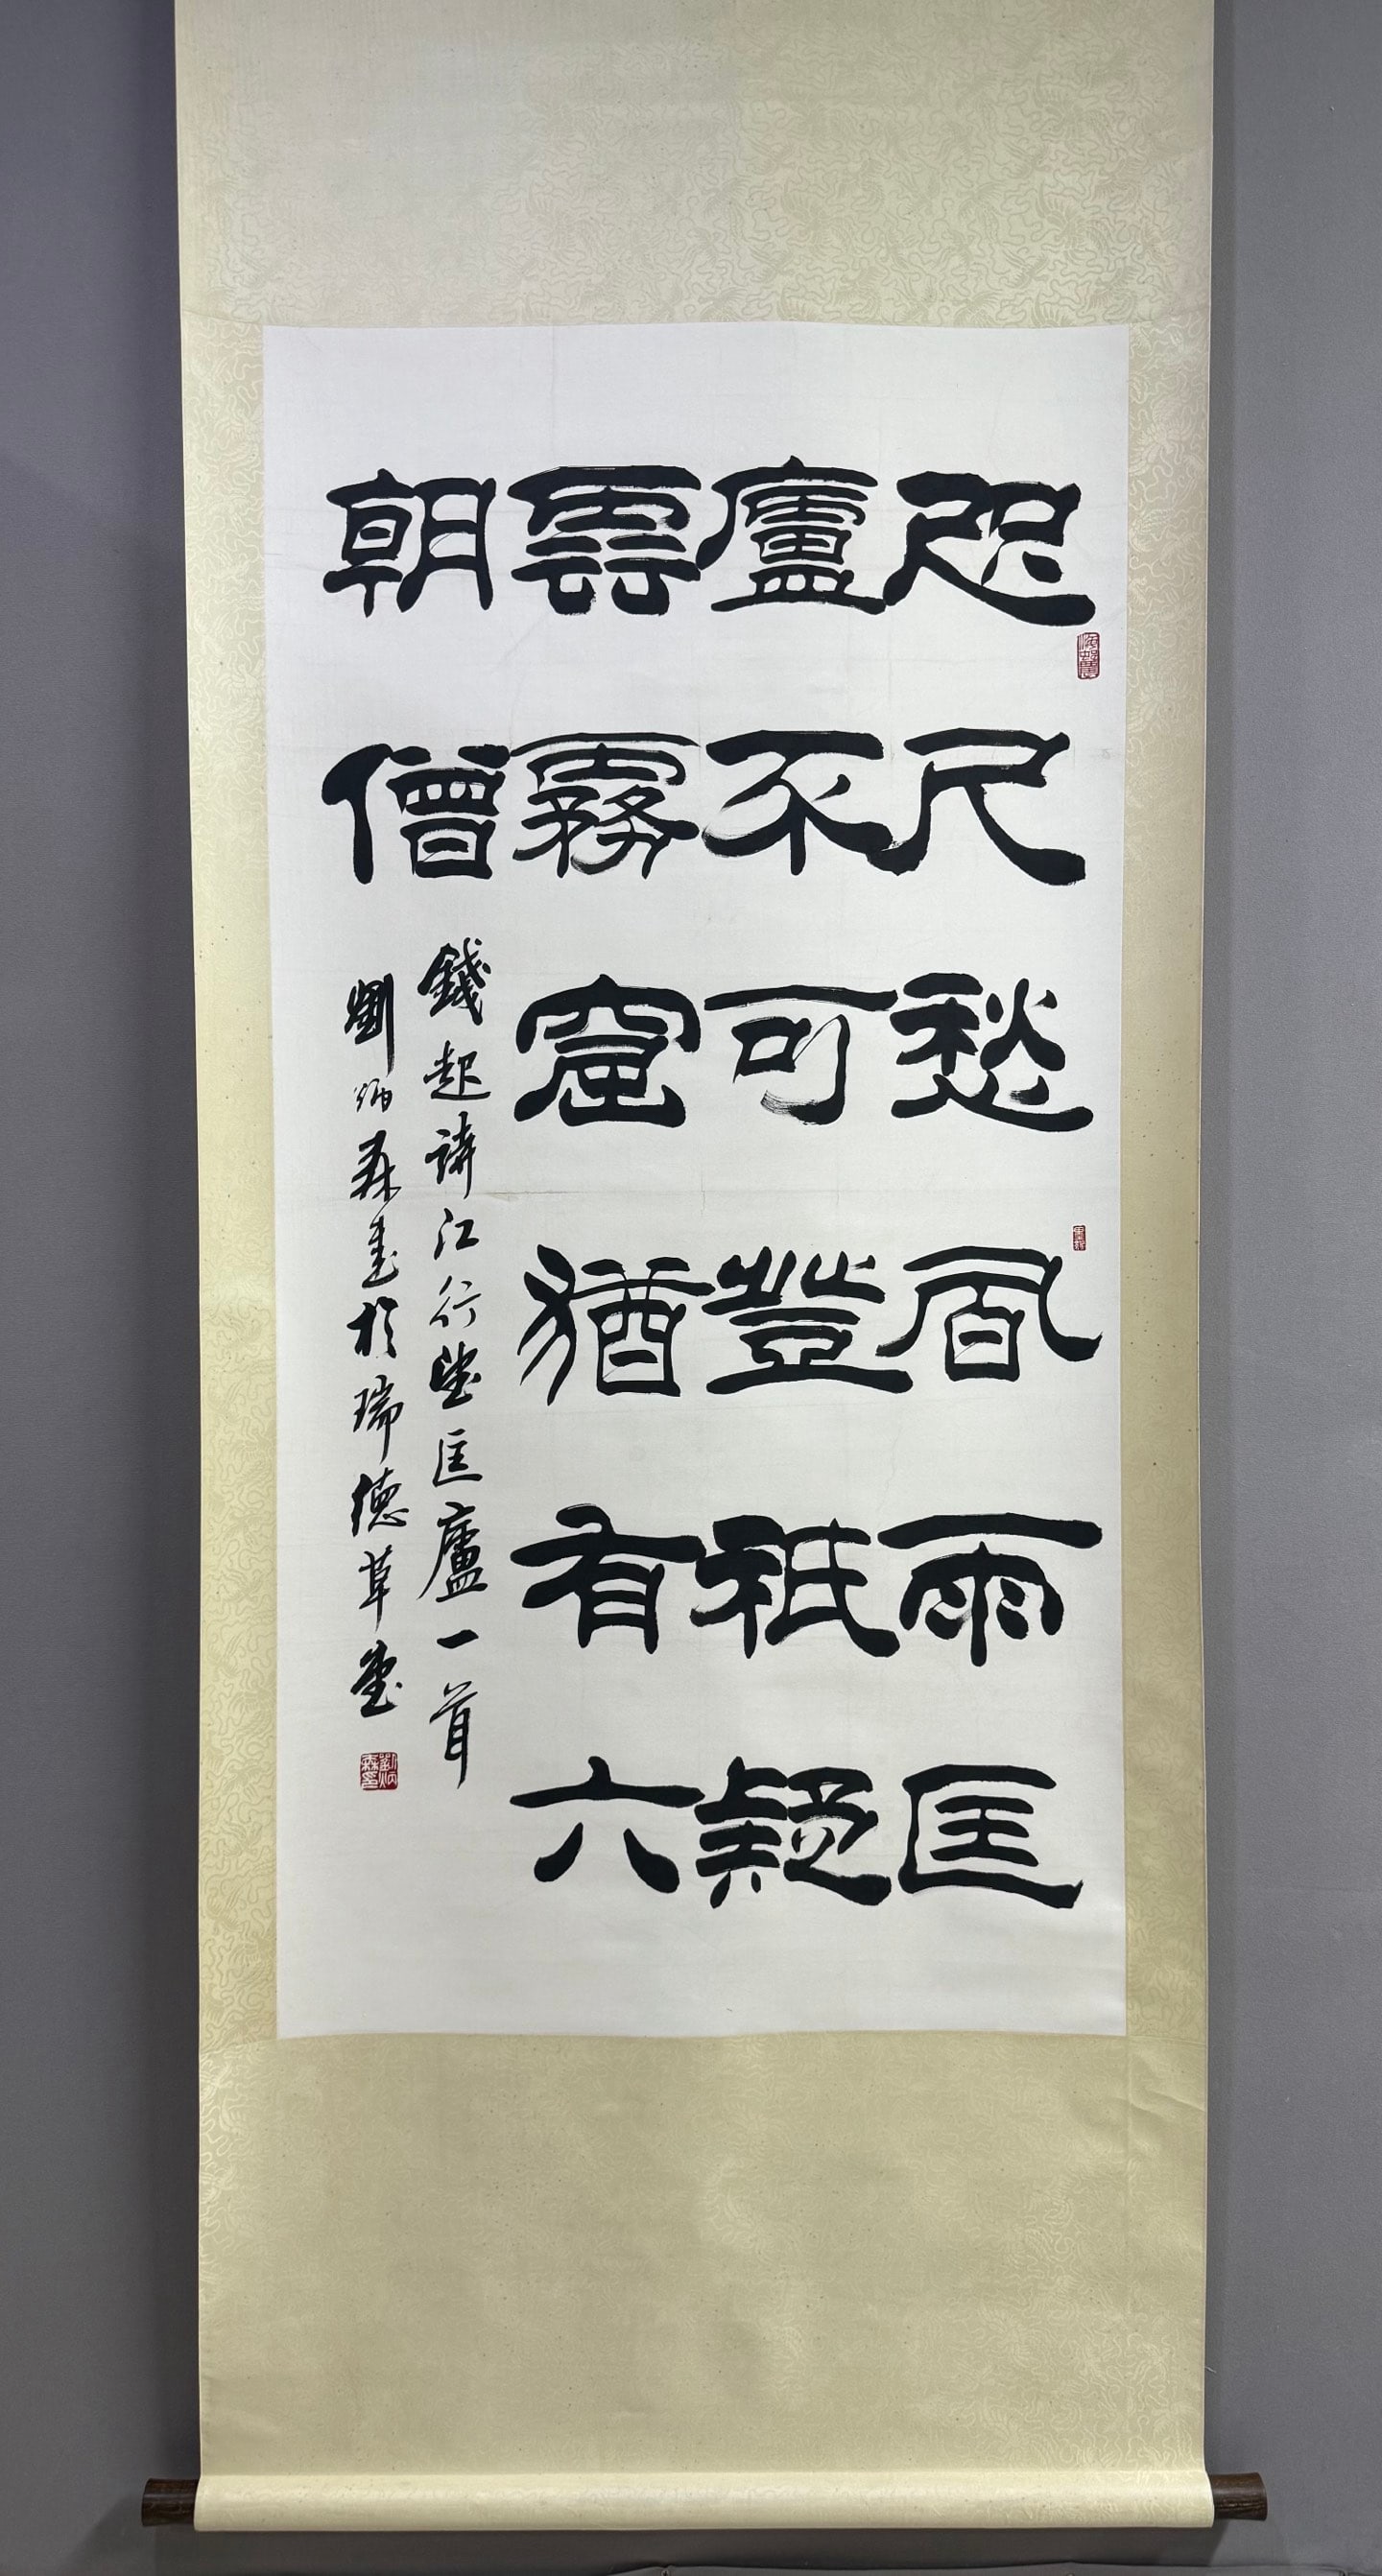 咫尺愁風雨匡
廬不可登祗疑
雲霧窟猶有六
朝僧
錢起詩江行望匡廬一首
劉炳森書於瑞德草堂
劉炳森印